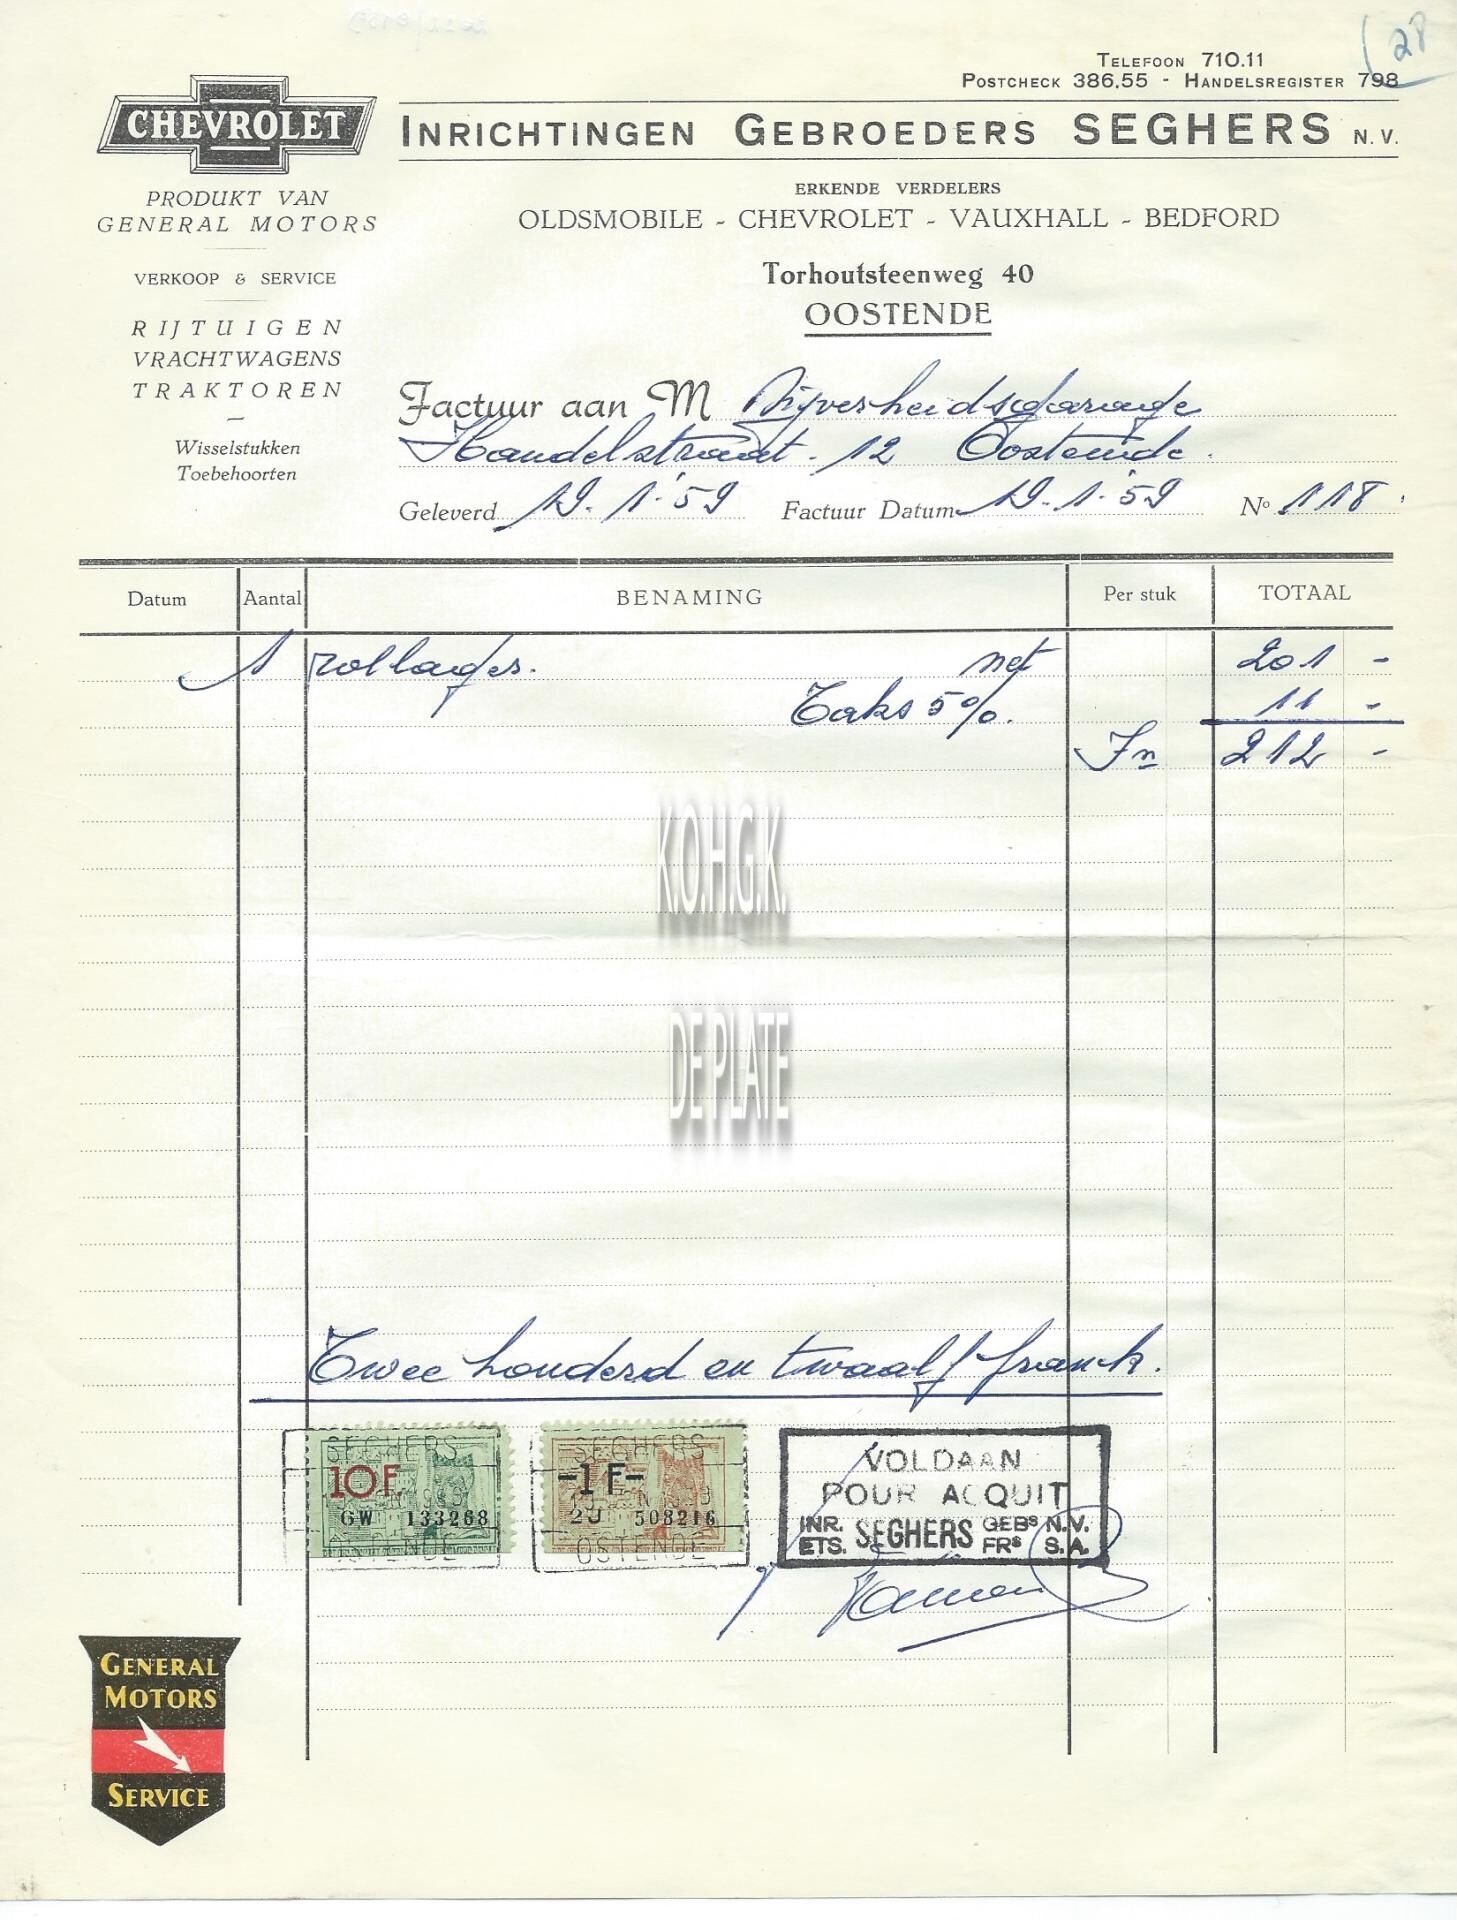 28
TELEFOON 710.11
POSTCHECK 386.55 - HANDELSREGISTER 798
CHEVROLET
INRICHTINGEN GEBROEDERS SEGHERS N.V.
PRODUKT VAN
GENERAL MOTORS
ERKENDE VERDELERS
OLDSMOBILE - CHEVROLET - VAUXHALL - BEDFORD
VERKOOP & SERVICE
Torhoutsteenweg 40
OOSTENDE
RIJTUIGEN
VRACHTWAGENS
TRAKTOREN
Wisselstukken
Toebehoorten
Factuur aan M Nijverheidsgarage
Handelstraat. 12 Oostende.
Geleverd 19.1.'59 Factuur Datum 19.1.'59 No 118
Datum Aantal BENAMING Per stuk TOTAAL
1 rollager. net 201 -
Taks 5%. 11 -
Fn 212 -
K.O.H.G.K.
DE PLATE
Twee honderd en twaalf franck.
SEGHERS
10F.
GW 133268
OSTENDE
SEGHERS
-1F-
2J 508216
OSTENDE
VOLDAAN
POUR ACQUIT
INR. SEGHERS GEBS N.V.
ETS. FRS S.A.
GENERAL
MOTORS
SERVICE